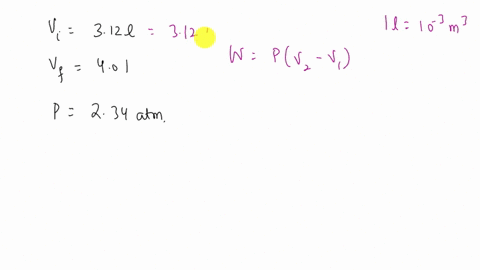 Vi = 3.12l = 3.12
1l = 10⁻³ m³
Vf = 4.01
W = P(V₂ - V₁)
P = 2.34 atm.